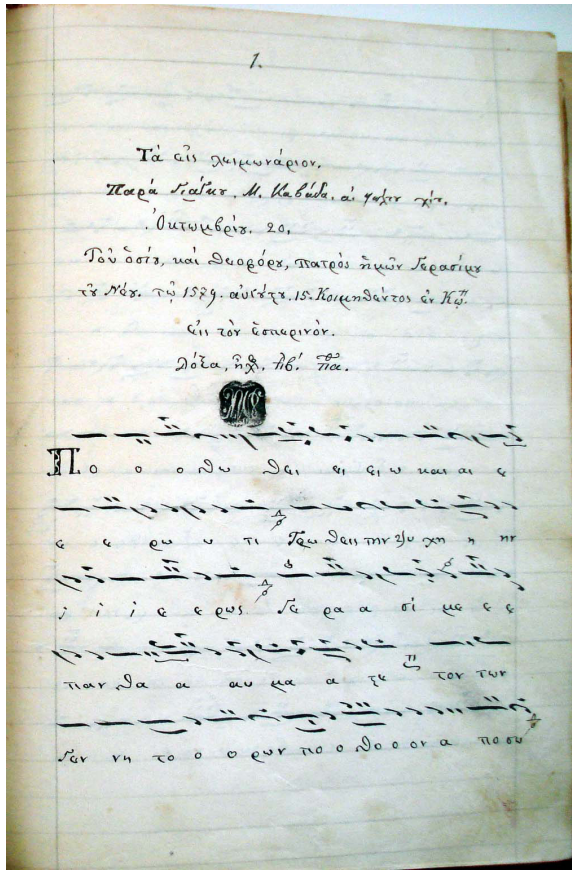 1.
Τά εἰς λειμωνάριον.
Παρά Μ. Καβάδα. ἀ.
Ὀκτωμβρίου. 20.
Τοῦ ὁσίου, καί θεοφόρου, πατρός ἡμῶν Γερασίμου
τοῦ Νέου. τῷ 1579. αὐγούστου. 15. Κοιμηθέντος ἐν
εἰς τόν ἑσπερινόν.
Δόξα, ἦχ. Πα.
Π ο ο ο θω θει ει ει ω και αι ε
ε ε ρω υ τι τρω θεις την ψυ χη η ην
ι ι ι ε ε ρως. Γε ρα α σι με ε ε
παν θα α αυ μα α ζε τον των
Γεν νη το ο ο ρων πο ο θο ο ον α πο σω